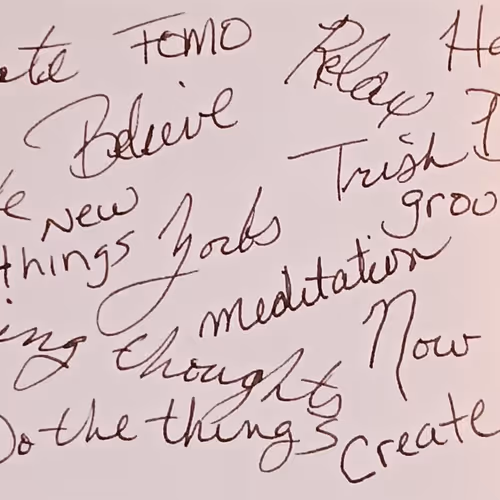 FOMO Relax
Believe
Trish
New
things Yorks groo
meditation
ing thoughts Now
Do the things Create